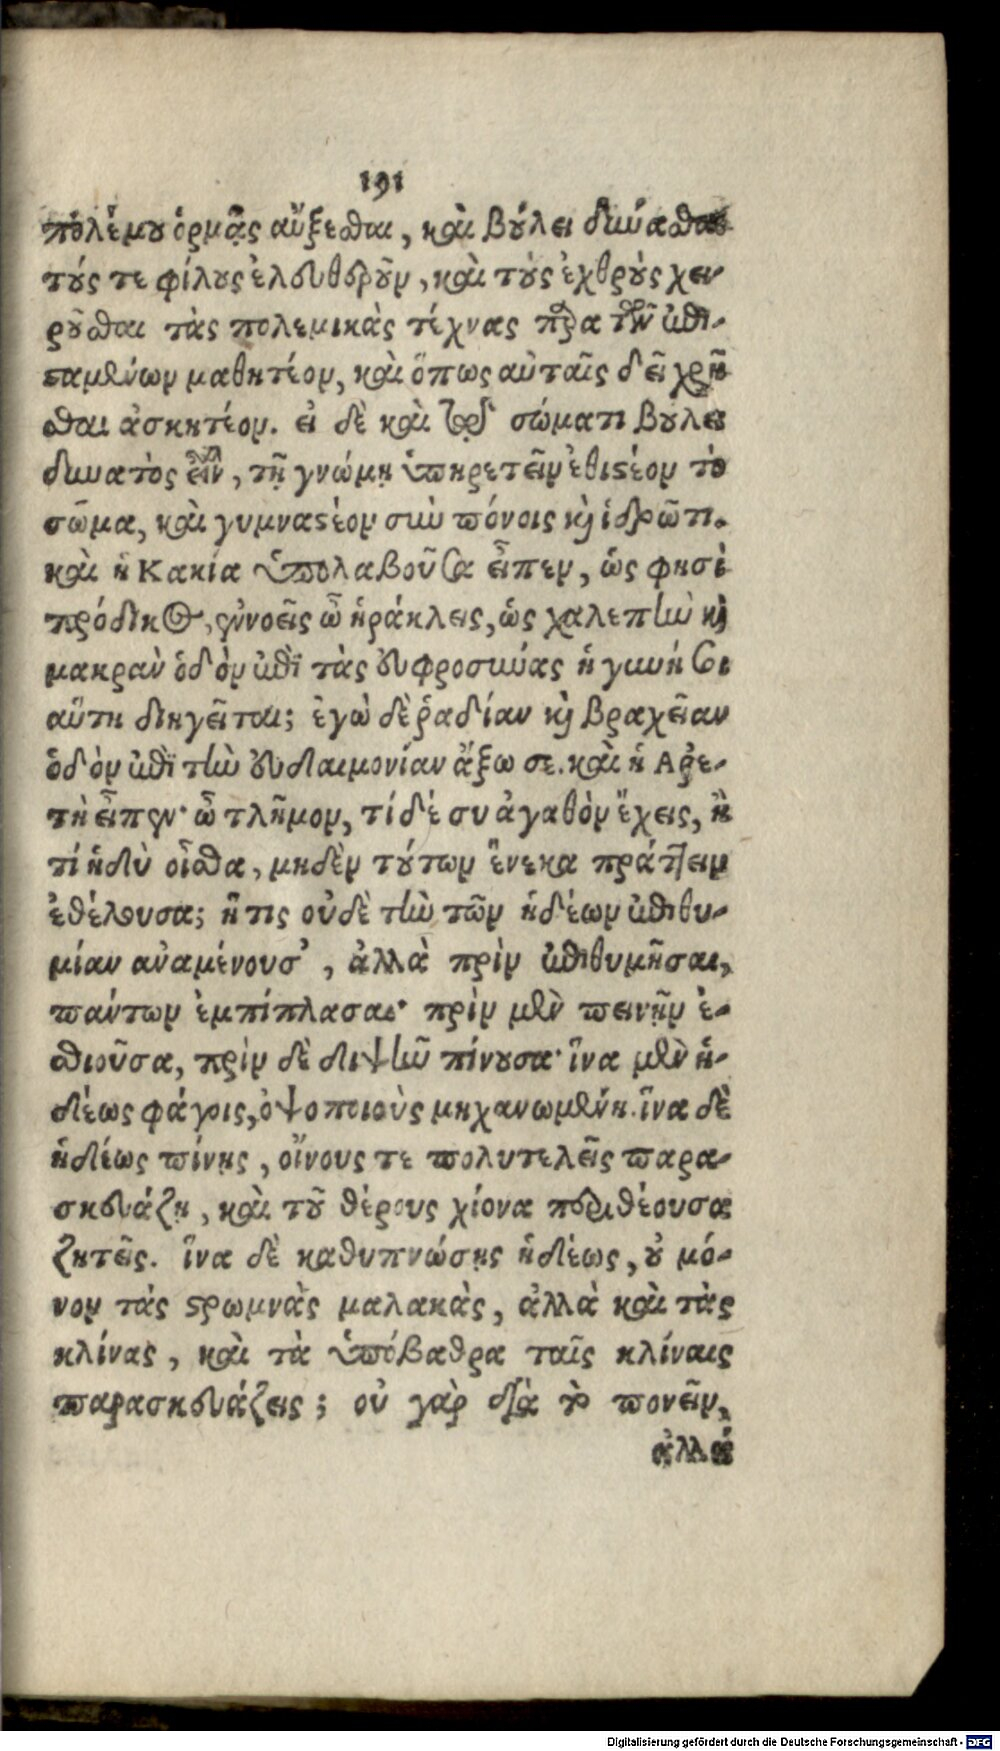 191
πολέμου ὁρμᾷς αὔξεσθαι, καὶ βούλει δύνασθαι
τούς τε φίλους ἐλευθεροῦν, καὶ τοὺς ἐχθροὺς χει-
ροῦσθαι τὰς πολεμικὰς τέχνας παρὰ τῶν ἐπι-
σαμένων μαθητέον, καὶ ὅπως αὐταῖς δεῖ χρῆ-
σθαι ἀσκητέον. εἰ δὲ καὶ τῷ σώματι βούλει
δυνατὸς εἶναι, τῇ γνώμῃ ὑπηρετεῖν ἐθιστέον τὸ
σῶμα, καὶ γυμναστέον σὺν πόνοις καὶ ἱδρῶτι.
καὶ ἡ Κακία ὑπολαβοῦσα εἶπεν, ὥς φησὶ
πρόδικος, ἐννοεῖς ὦ ἡράκλεις, ὡς χαλεπὴν καὶ
μακρὰν ὁδὸν ἐπὶ τὰς εὐφροσύνας ἡ γυνή σοι
αὕτη διηγεῖται; ἐγὼ δὲ ῥαδίαν καὶ βραχεῖαν
ὁδὸν ἐπὶ τὴν εὐδαιμονίαν ἄξω σε. καὶ ἡ Αρε-
τὴ εἶπεν· ὦ τλῆμον, τί δέ συ ἀγαθὸν ἔχεις, ἢ
τί ἡδὺ οἶσθα, μηδὲν τούτων ἕνεκα πράττειν
ἐθέλουσα; ἥτις οὐδὲ τὴν τῶν ἡδέων ἐπιθυ-
μίαν ἀναμένουσ', ἀλλὰ πρὶν ἐπιθυμῆσαι,
πάντων ἐμπίπλασαι· πρὶν μὲν πεινῇν ἐ-
σθιοῦσα, πρὶν δὲ διψῆν πίνουσα· ἵνα μὲν ἡ-
δέως φάγοις, ὀψοποιοὺς μηχανωμένη. ἵνα δὲ
ἡδέως πίνῃς, οἴνους τε πολυτελεῖς παρα-
σκευάζῃ, καὶ τοῦ θέρους χίονα περιθέουσα
ζητεῖς. ἵνα δὲ καθυπνώσῃς ἡδέως, οὐ μό-
νον τάς στρωμνὰς μαλακὰς, ἀλλὰ καὶ τὰς
κλίνας, καὶ τὰ ὑπόβαθρα ταῖς κλίναις
παρασκευάζεις; οὐ γὰρ διὰ τὸ πονεῖν,
ἀλλὰ
Digitalisierung gefördert durch die Deutsche Forschungsgemeinschaft - DFG